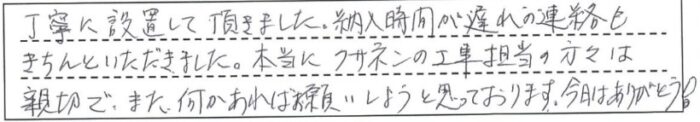 丁寧に設置して頂きました。納入時間が遅れの連絡も
きちんといただきました。本当にフサネンの工事担当の方々は
親切で、また、何かあればお願いしようと思っております。今日はありがとう